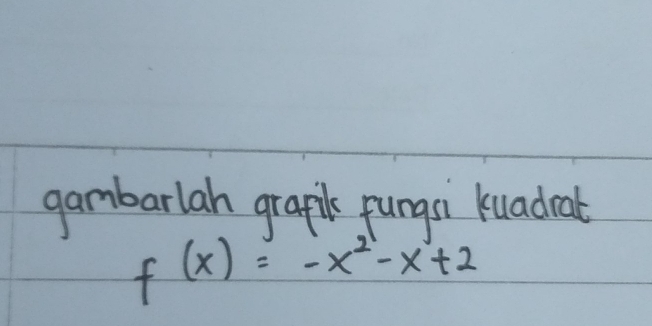 gambarlah grafik fungsi kuadrat
f(x) = -x²-x+2